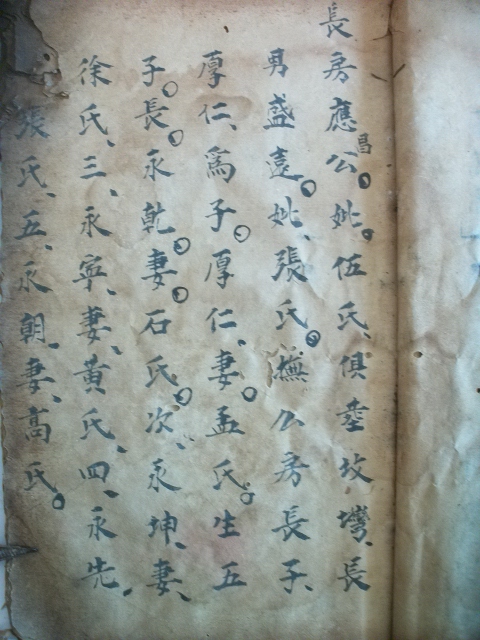 長房應昌公。妣。伍氏、俱塟坟灣、長
男盛遠。妣、張氏。撫公房長子、
厚仁、為子。厚仁、妻。孟氏。生五
子。長。永乾。妻。石氏。次、永坤、妻、
徐氏、三、永寧、妻、黃氏、四、永先、
張氏、五、永朝、妻、高氏。